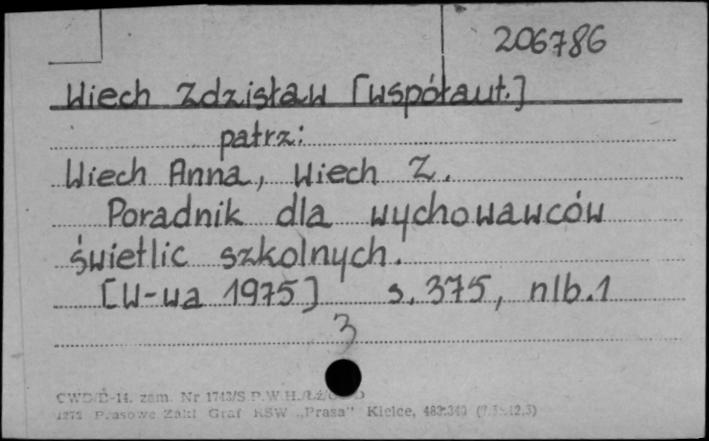 206786
Wiech Zdzisław [współaut.]
patrz:
Wiech Anna, Wiech Z.
Poradnik dla wychowawców
świetlic szkolnych.
[W-wa 1975] s. 375, nlb.1
3
zam. Nr 1743/S P.W.H.
Prasowe Zakł Graf RSW „Prasa" Kielce,